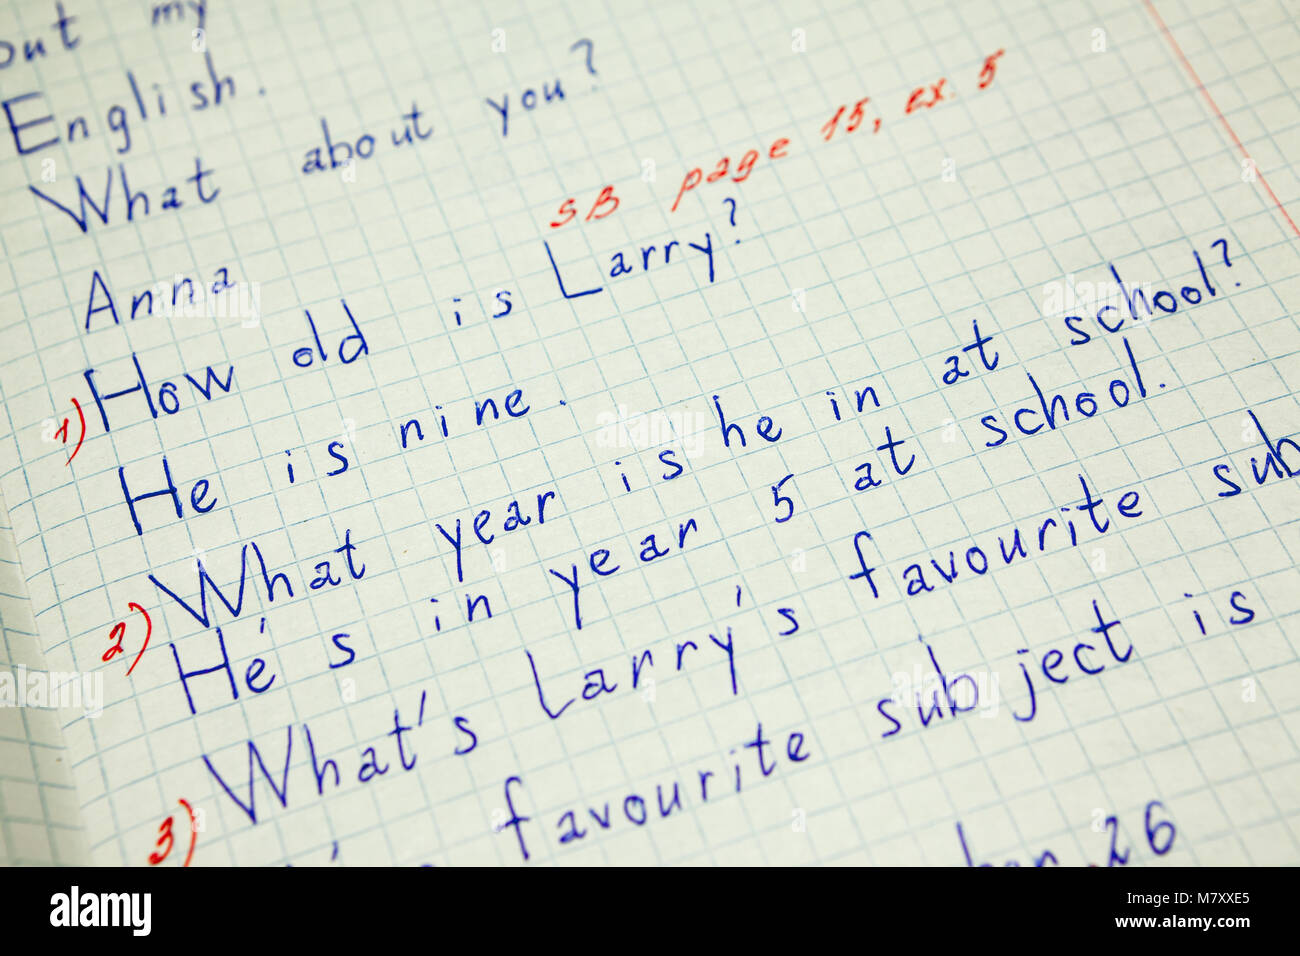 out my
English.
What about you?
Anna
SB page 15, ex. 5
1) How old is Larry?
He is nine.
2) What year is he in at school?
He's in year 5 at school.
3) What's Larry's favourite sub
favourite subject is
26
alamy
Image ID: M7XXE5
www.alamy.com